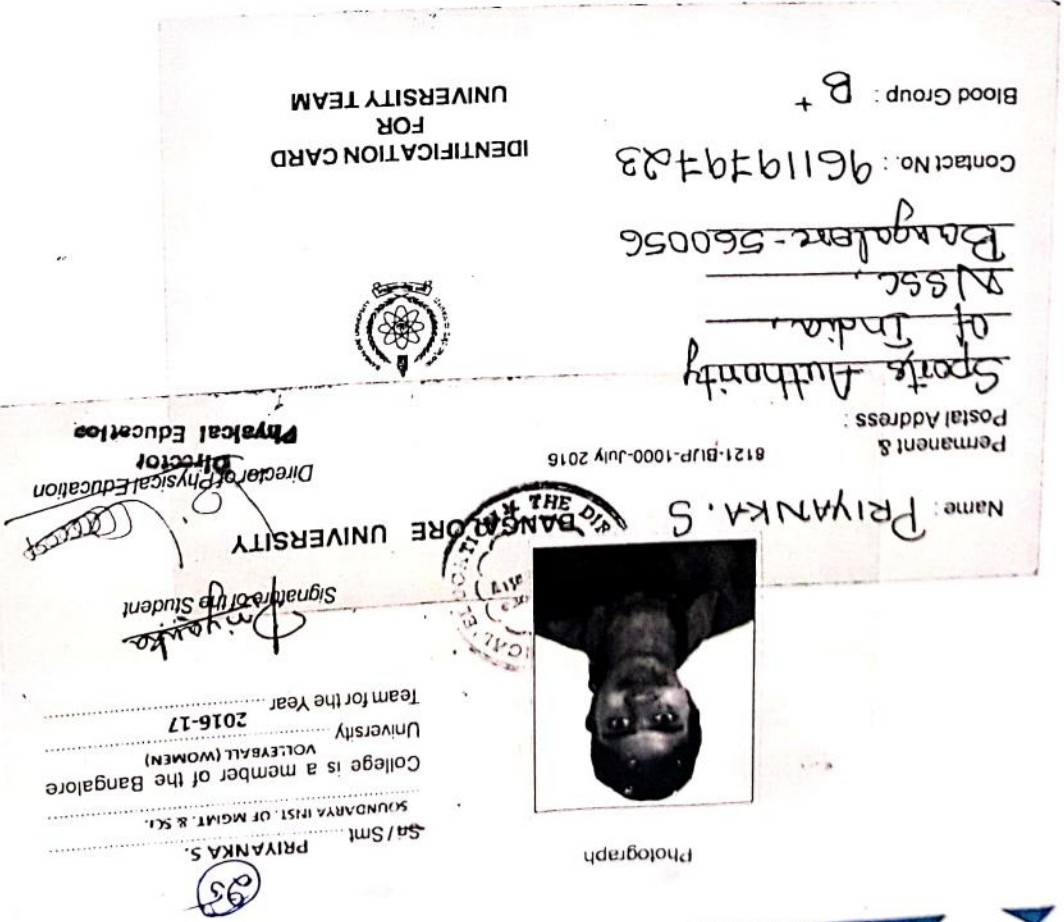 Photograph
95
Sri/Smt PRIYANKA S.
SOUNDARYA INST. OF MGMT. & SCI.
College is a member of the Bangalore
University VOLLEYBALL (WOMEN)
Team for the Year 2016-17
Priyanka
Signature of the Student
BANGALORE UNIVERSITY
THE DIR
Director of Physical Education
Director
Physical Education
Name : PRIYANKA. S
8121-BUP-1000-July 2016
Permanent &
Postal Address :
Sports Authority
of India,
NSSC,
Bangalore-560056
Contact No. : 9611979723
Blood Group : B+
IDENTIFICATION CARD
FOR
UNIVERSITY TEAM